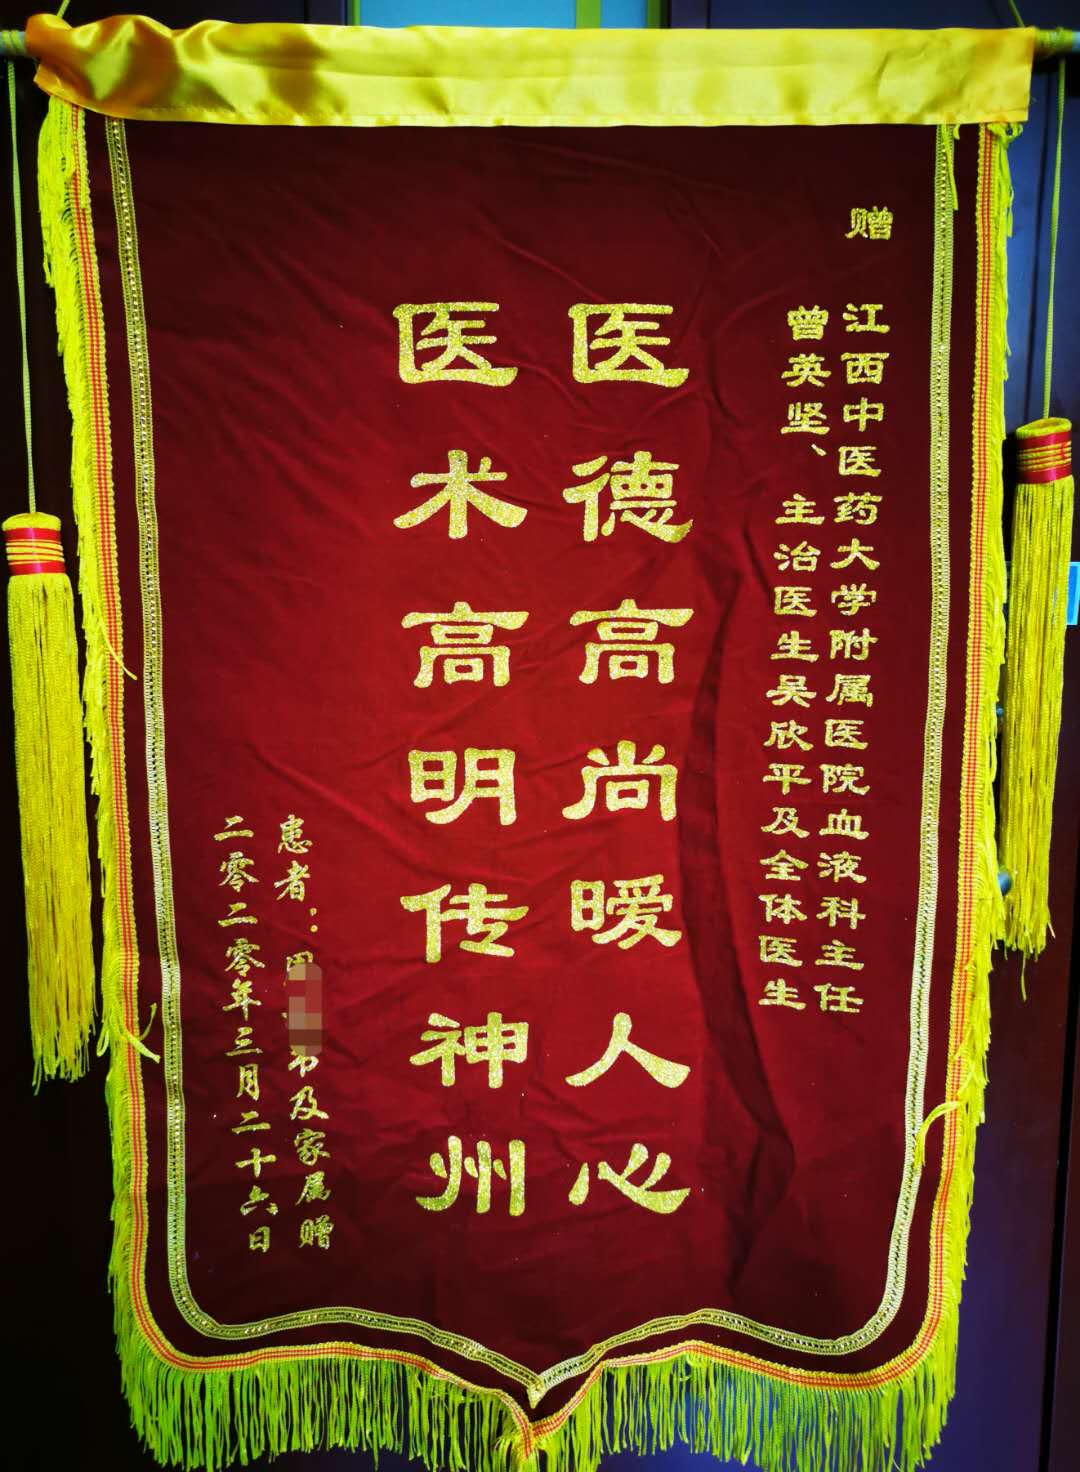 赠
江西中医药大学附属医院血液科主任
曾英坚、主治医生吴欣平及全体医生
医德高尚暧人心
医术高明传神州
患者：及家属赠
二零二零年三月二十六日